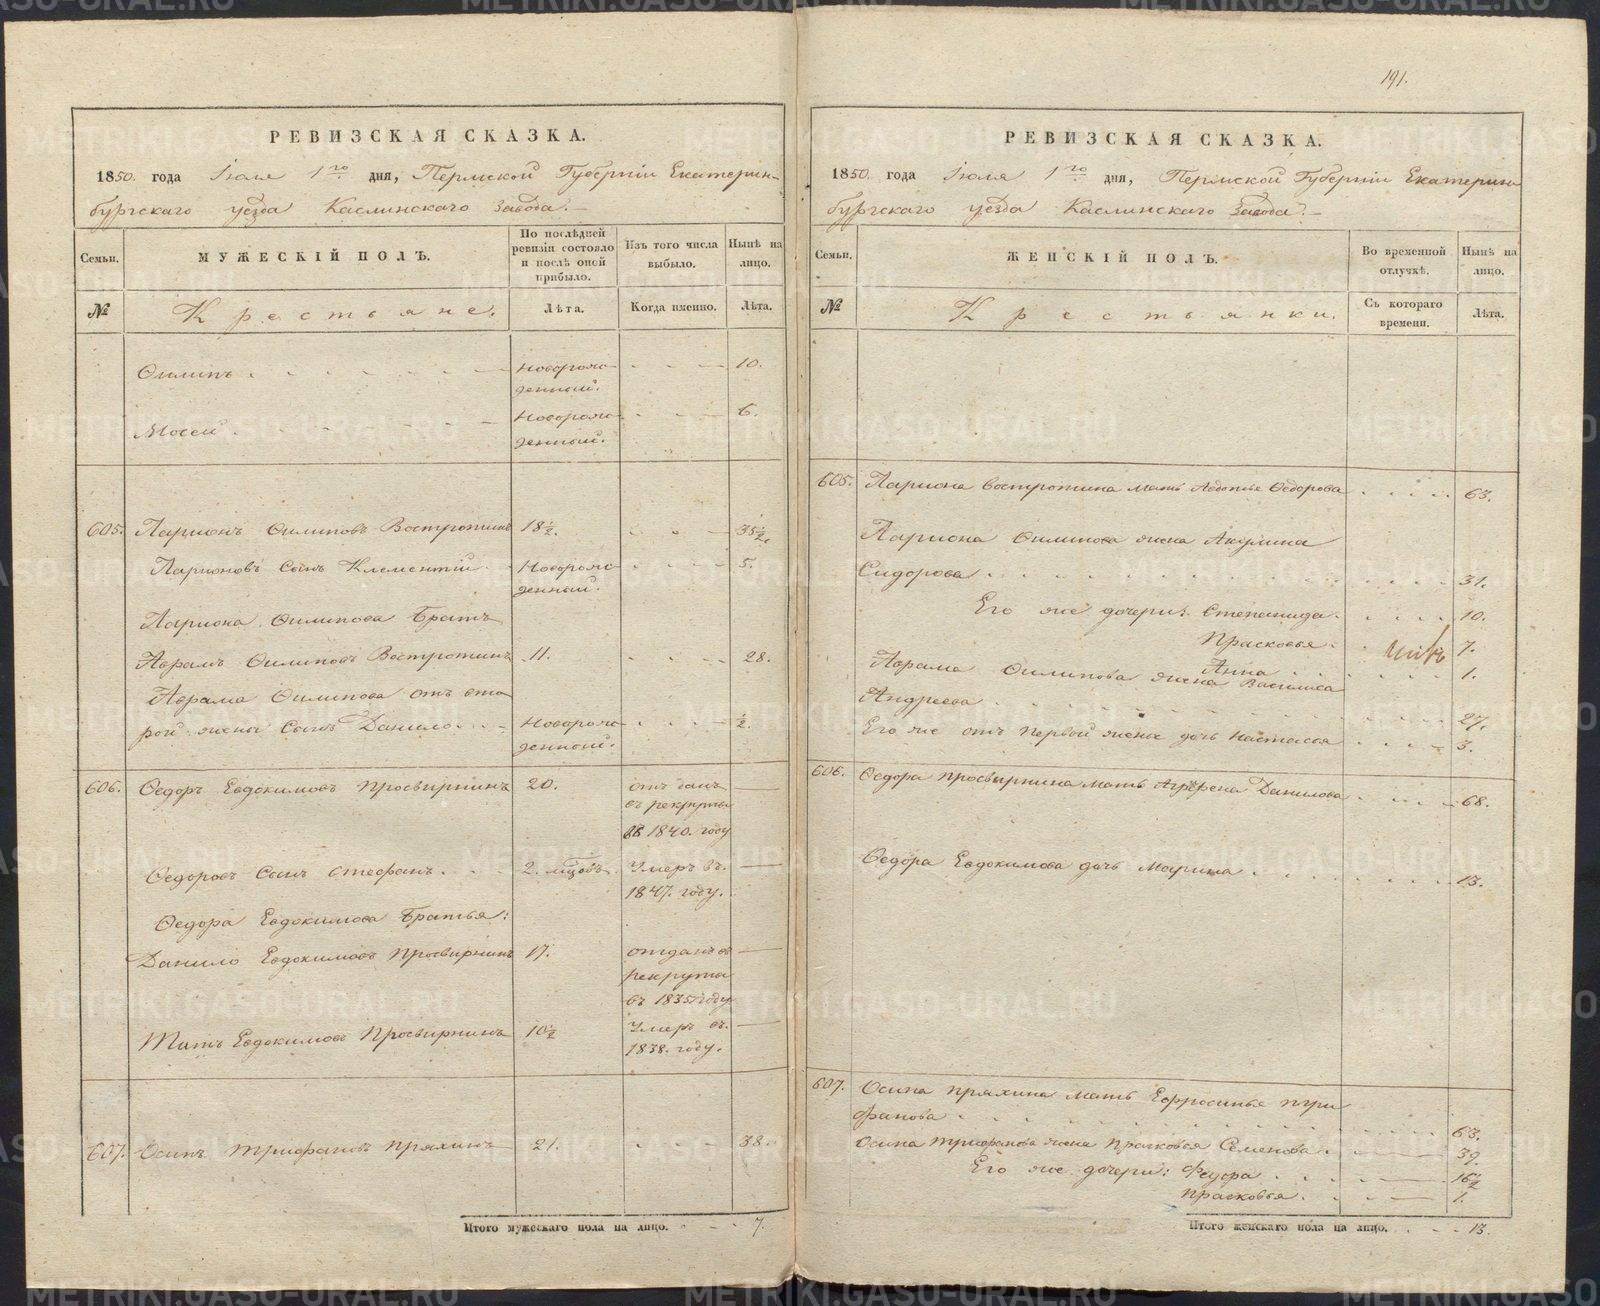 191.
РЕВИЗСКАЯ СКАЗКА.
1850. года Іюля 1го дня, Пермской Губерніи Екатерин-
бургскаго уезда Каслинскаго Завода.
Семьи.
МУЖЕСКІЙ ПОЛЪ.
По послѣдней ревизіи состояло и послѣ оной прибыло.
Изъ того числа выбыло.
Нынѣ на лицо.
№
Крестьяне.
Лѣта.
Когда именно.
Лѣта.
Филипъ новорож- 10.
денный.
Мосей Новорож- 6.
денный.
605. Ларионъ Филиповъ Востротинъ 18½. 35½.
Ларионовъ Сынъ Клементій Новорож- 5.
денный.
Лариона Филипова Братъ
Аврамъ Филиповъ Востротинъ 11. 28.
Аврама Филипова отъ вто
рой жены Сынъ Данило Новорож- ½.
денный.
606. Федоръ Евдокимовъ Просвирнинъ 20. отъ данъ
въ рекруты
въ 1840. году
Федоровъ Сынъ Стефанъ 2. мѣсцовъ. Умеръ въ
1847. году.
Федора Евдокимова Братья:
Данило Евдокимовъ Просвирнинъ 17. отданъ въ
рекруты
въ 1835 году
Евдокимовъ Просвирнинъ 10½ Умеръ въ
1838. году.
607. Осипъ Трифановъ Пряхинъ 21. 38.
Итого мужескаго пола на лицо. 7.
РЕВИЗСКАЯ СКАЗКА.
1850. года Іюля 1го дня, Пермской Губерніи Екатерин-
бургскаго уезда Каслинскаго Завода.
Семьи.
ЖЕНСКІЙ ПОЛЪ.
Во временной отлучкѣ.
Нынѣ на лицо.
№
Крестьянки.
Съ котораго времени.
Лѣта.
605. Лариона Востротина мать Авдотья Федорова 63.
Лариона Филипова жена Акулина
Сидорова 31.
Его же дочери: Степанида 10.
Прасковья 7.
Анна 1.
Аврама Филипова жена Василиса
Андреева 27.
Его же отъ первой жены дочь Настасья 3.
606. Федора Просвирнина мать Агрфена Данилова 68.
Федора Евдокимова дочь Марина 13.
607. Осипа Пряхина мать Ефросинья
фанова 63.
Осипа Трифанова жена Прасковья Семенова 39.
Его же дочери: Федора 16½
Прасковья 1.
Итого женскаго пола на лицо. 13.
METRIKI.GASO-URAL.RU